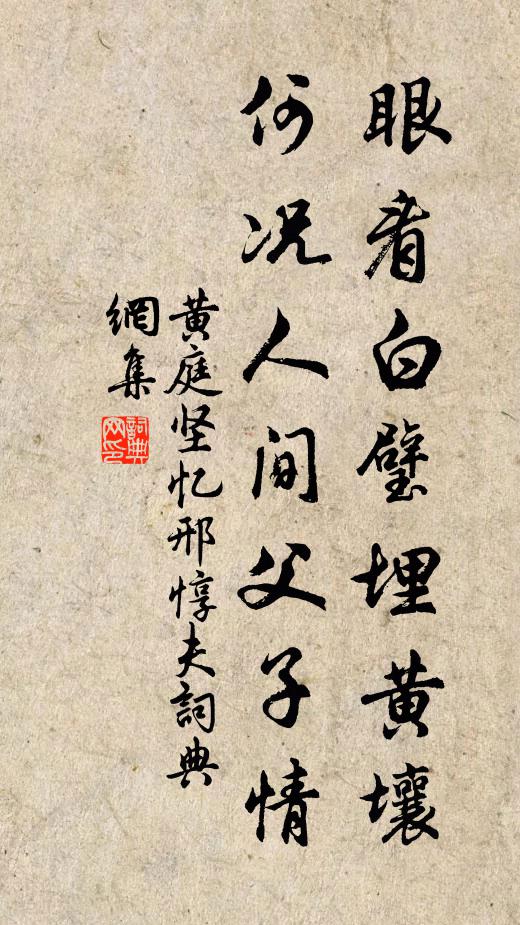 眼看白璧埋黄壤
何况人间父子情
黄庭坚忆邢惇夫詞典
網集
詞典
网印